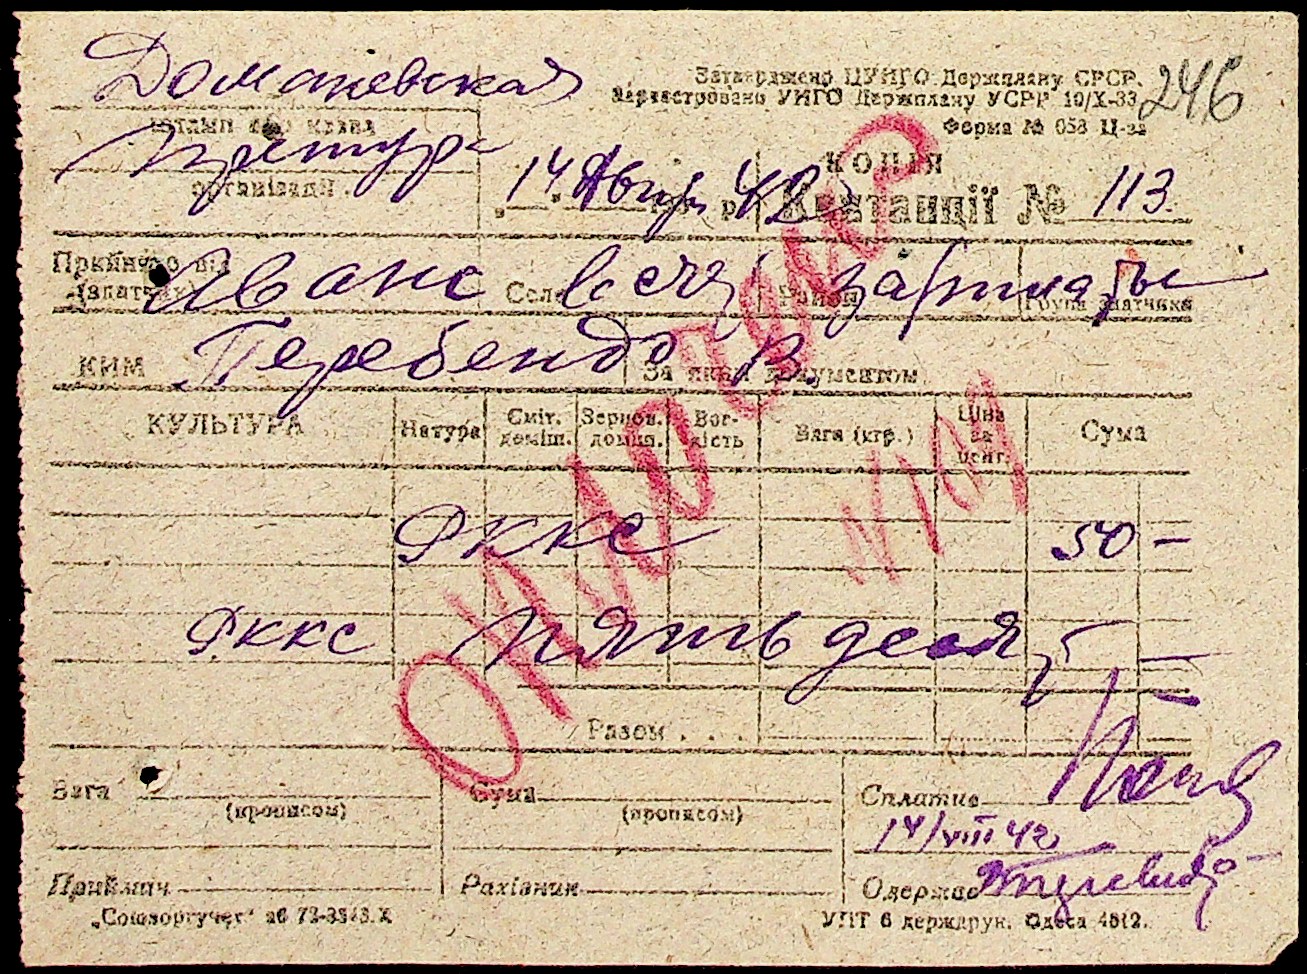 Доманевская
Затверджено ЦУНГО Держплану СРСР.
Зареєстровано УНГО Держплану УСРР 10/Х-33
246
Форма № 058 Ц-за
претура
організації
КОПІЯ
14 Авгу. 42 р.
Квитанції № 113.
Прийнято від
(здатчик)
Аванс в счет зарплаты
Село
Район
Група здатчика
КИМ Перебендо В.
За яким документом
КУЛЬТУРА
Натура
Сміт. доміш.
Зернов. доміш.
Вог-кість
Вага (кгр.)
Ціна за цент.
Сума
РККС 50 —
РККС пятьдесят —
Разом . . .
Оплочено
№ 101
Вага
(прописом)
Сума
(прописом)
Сплатив
14/VIII 42
Приймач
Рахівник
Одержав
„Союзоргучет"
УПТ 6 держдрук. Одеса 4812.